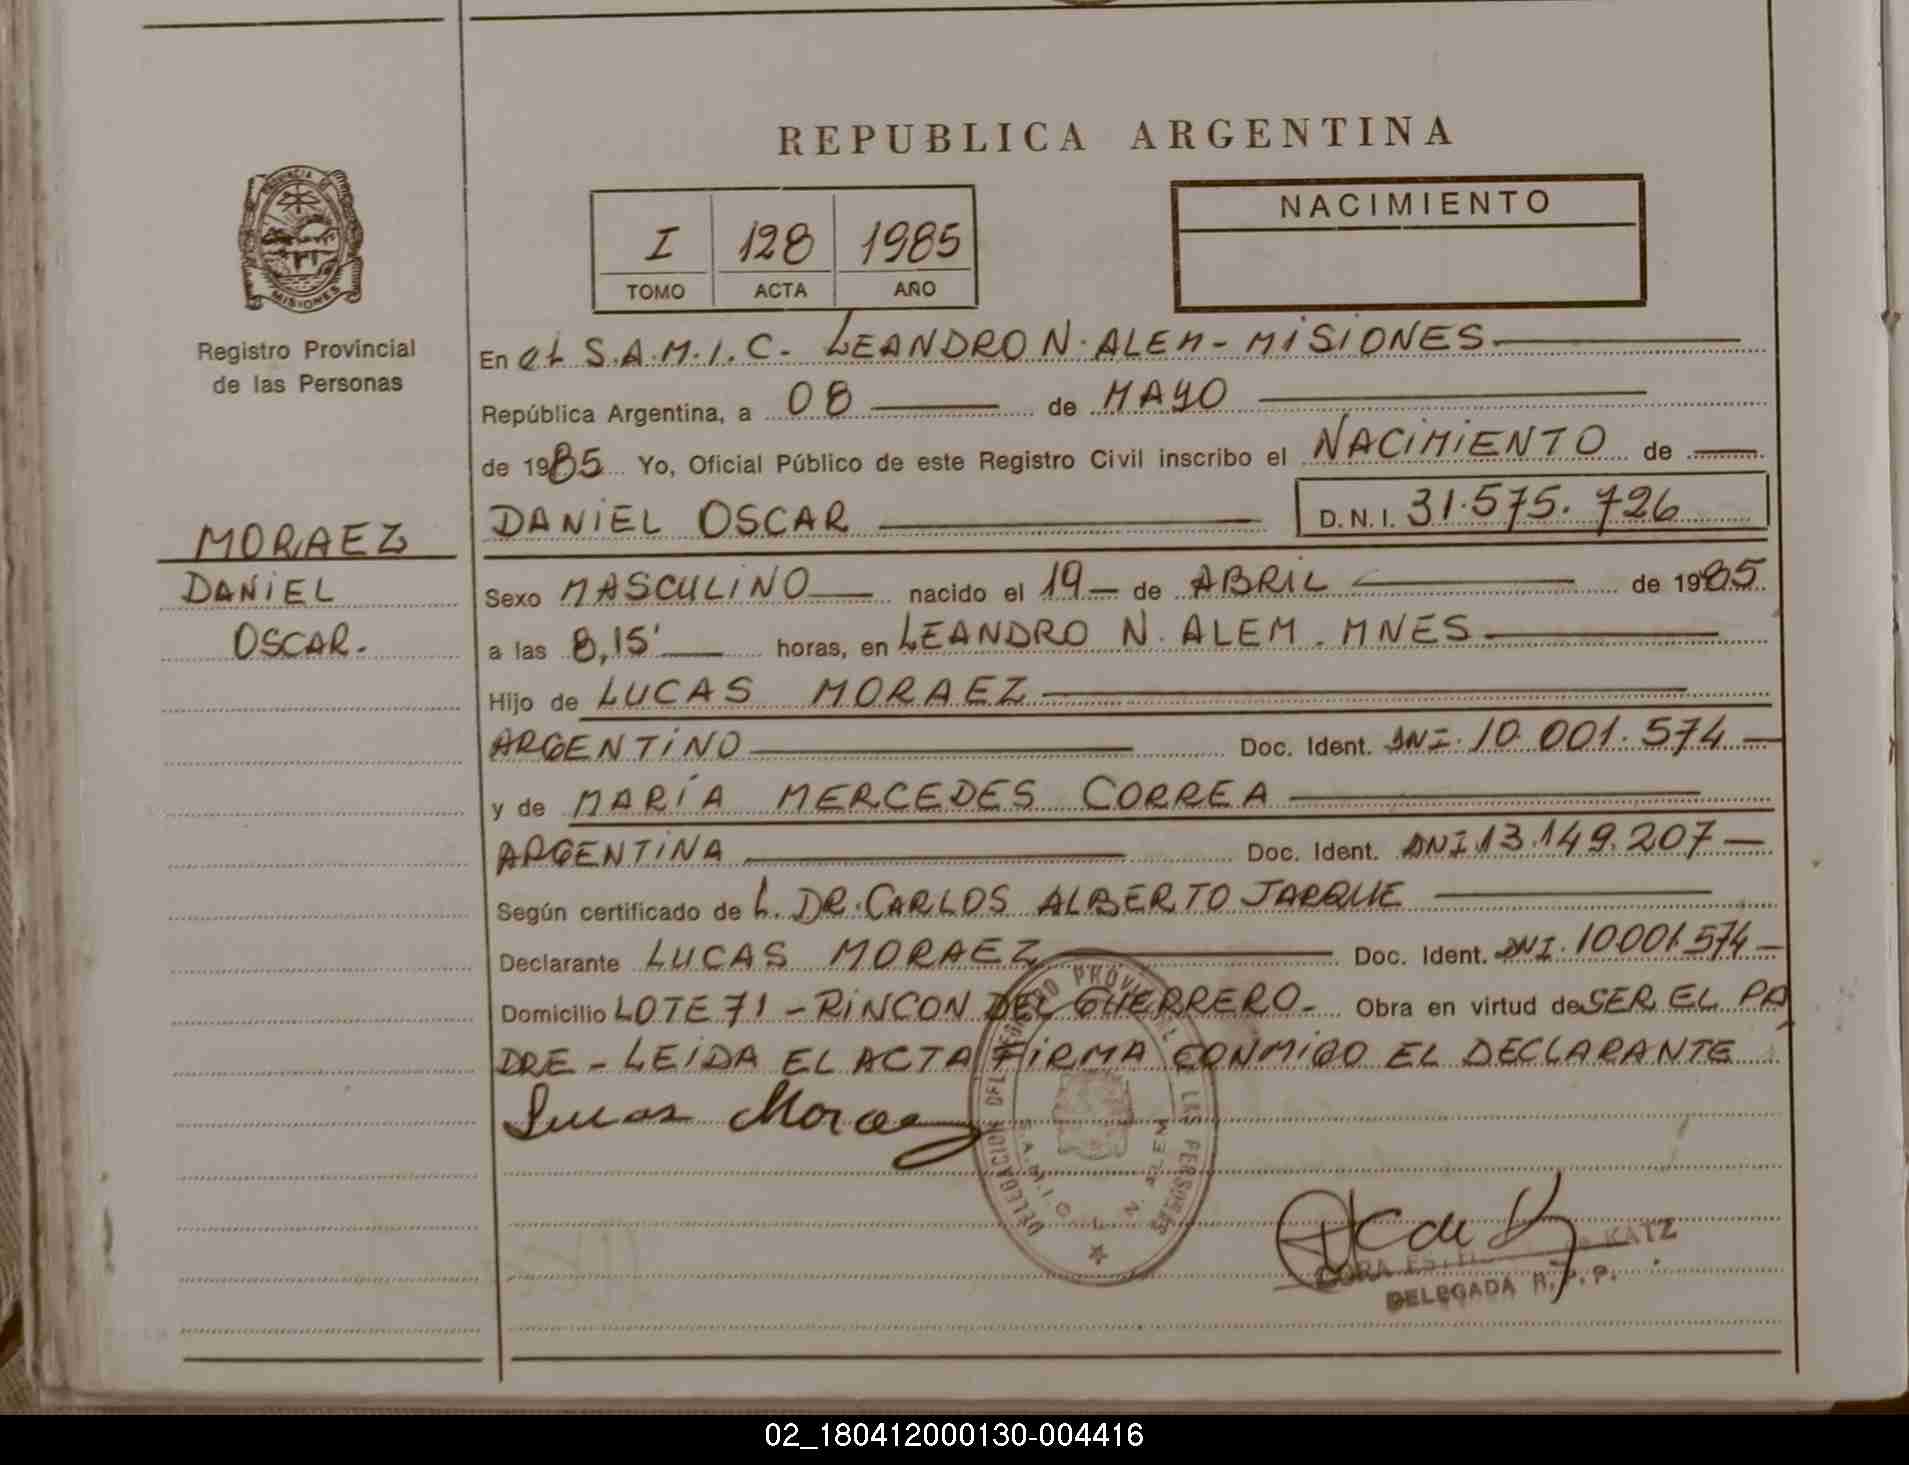 REPUBLICA ARGENTINA
PROVINCIA DE
MISIONES
Registro Provincial
de las Personas
MORAEZ
DANIEL
OSCAR.
I 128 1985
TOMO ACTA AÑO
NACIMIENTO
En el S.A.M.I.C. LEANDRO N. ALEM - MISIONES
República Argentina, a 08 de MAYO
de 1985 Yo, Oficial Público de este Registro Civil inscribo el NACIMIENTO de
DANIEL OSCAR D.N.I. 31.575.726
Sexo MASCULINO nacido el 19 de ABRIL de 1985.
a las 8,15' horas, en LEANDRO N. ALEM. MNES
Hijo de LUCAS MORAEZ
ARGENTINO Doc. Ident. DNI. 10.001.574
y de MARÍA MERCEDES CORREA
ARGENTINA Doc. Ident. DNI 13.149.207
Según certificado de L. DR. CARLOS ALBERTO JARQUE
Declarante LUCAS MORAEZ Doc. Ident. DNI. 10.001.574
Domicilio LOTE 71 - RINCON DEL GUERRERO - Obra en virtud de SER EL PA
DRE - LEIDA EL ACTA FIRMA CONMIGO EL DECLARANTE
Lucas Moraez
DELEGACION DEL REGISTRO PROVINCIAL DE LAS PERSONAS
S.A.M.I.C. L. N. ALEM
CORA KATZ
DELEGADA R.P.P.
02_180412000130-004416